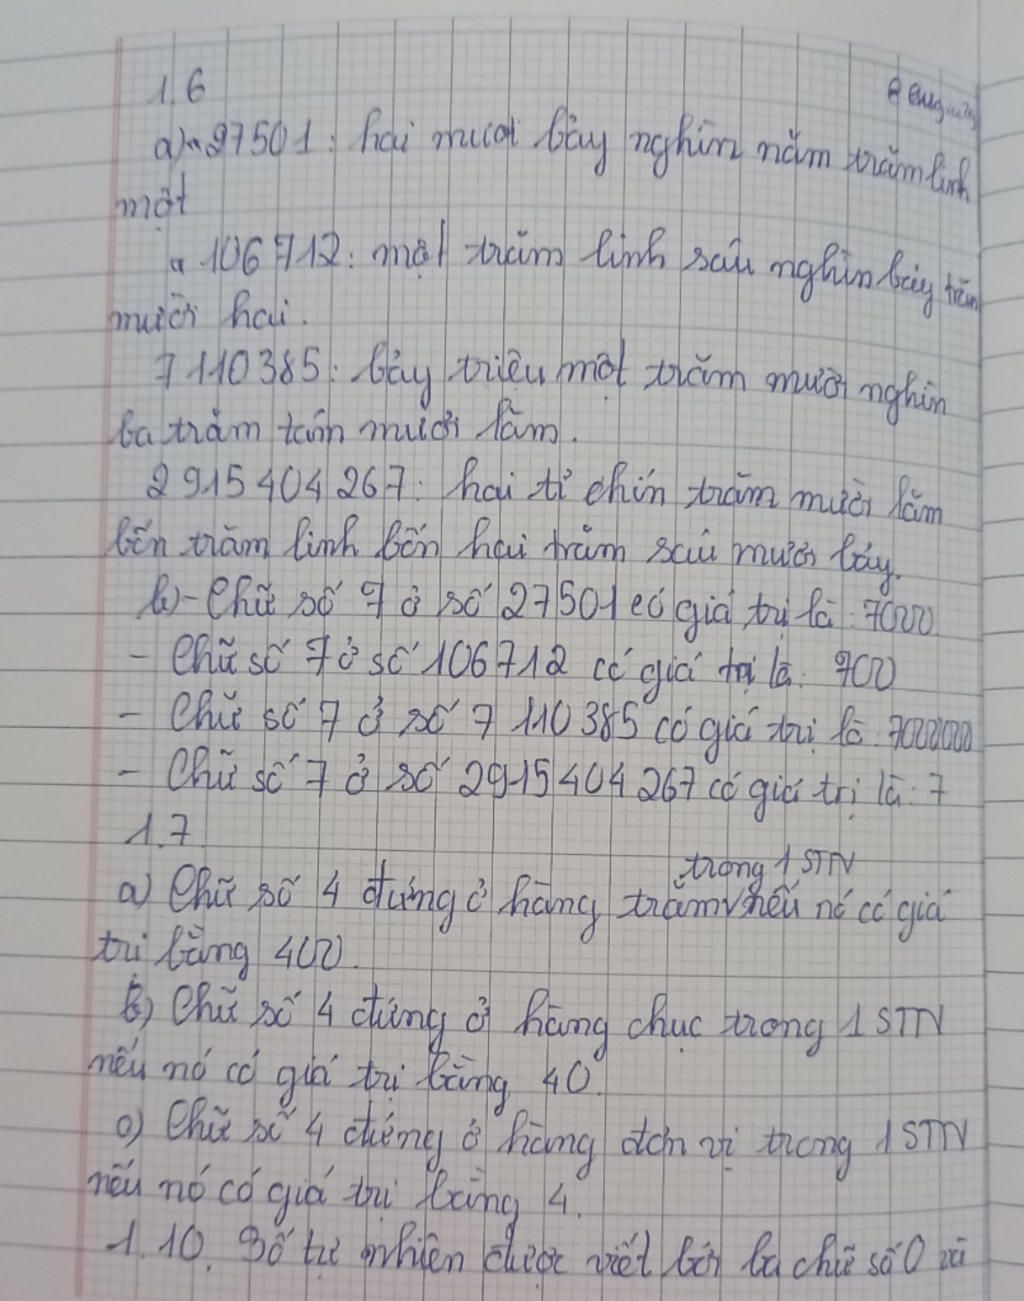 1.6
a) 27501: hai mươi bảy nghìn năm trăm linh
một
106 712: một trăm linh sáu nghìn bảy trăm
mười hai.
7 110 385: bảy triệu một trăm mười nghìn
ba trăm tám mươi lăm.
2 915 404 267: hai tỉ chín trăm mười lăm
bốn trăm linh bốn hai trăm sáu mươi bảy.
b) - Chữ số 7 ở số 27501 có giá trị là: 7000
- Chữ số 7 ở số 106712 có giá trị là: 700
- Chữ số 7 ở số 7 110 385 có giá trị là: 7000000
- Chữ số 7 ở số 2915 404 267 có giá trị là: 7
1.7
trong 1 STN
a) Chữ số 4 đứng ở hàng trăm nếu nó có giá
trị bằng 400.
b) Chữ số 4 đứng ở hàng chục trong 1 STN
nếu nó có giá trị bằng 40.
c) Chữ số 4 đứng ở hàng đơn vị trong 1 STN
nếu nó có giá trị bằng 4.
1.10. Số tự nhiên được viết bởi ba chữ số 0 và